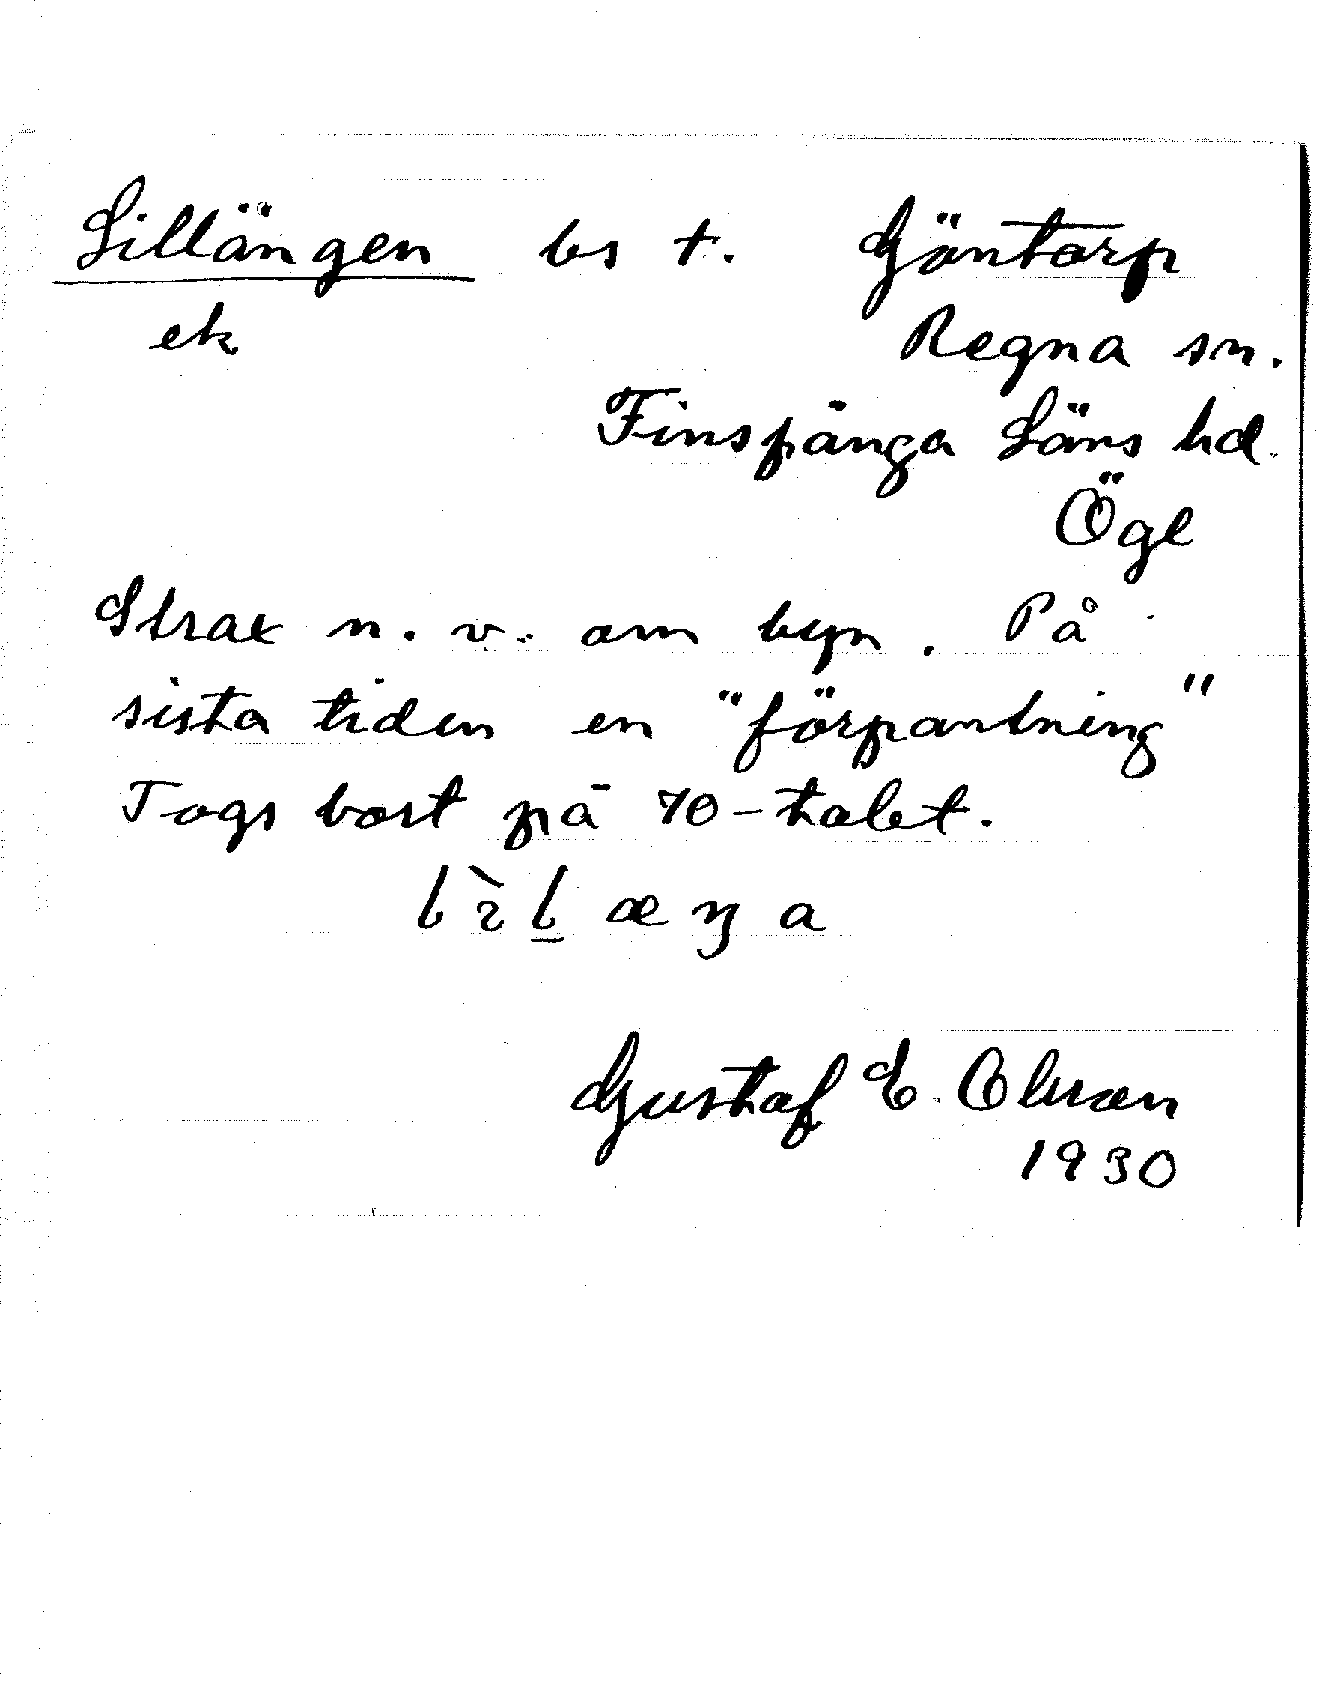 Lillängen bs t. Göntorp
ek Regna sn.
Finspånga Läns hd.
Ögl
Strax n. v. om byn. På
sista tiden en "förpantning"
Togs bort på 70-talet.
Gustaf E. Olsson
1930